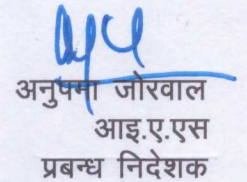 अनुपमा जोरवाल
आइ.ए.एस
प्रबन्ध निदेशक